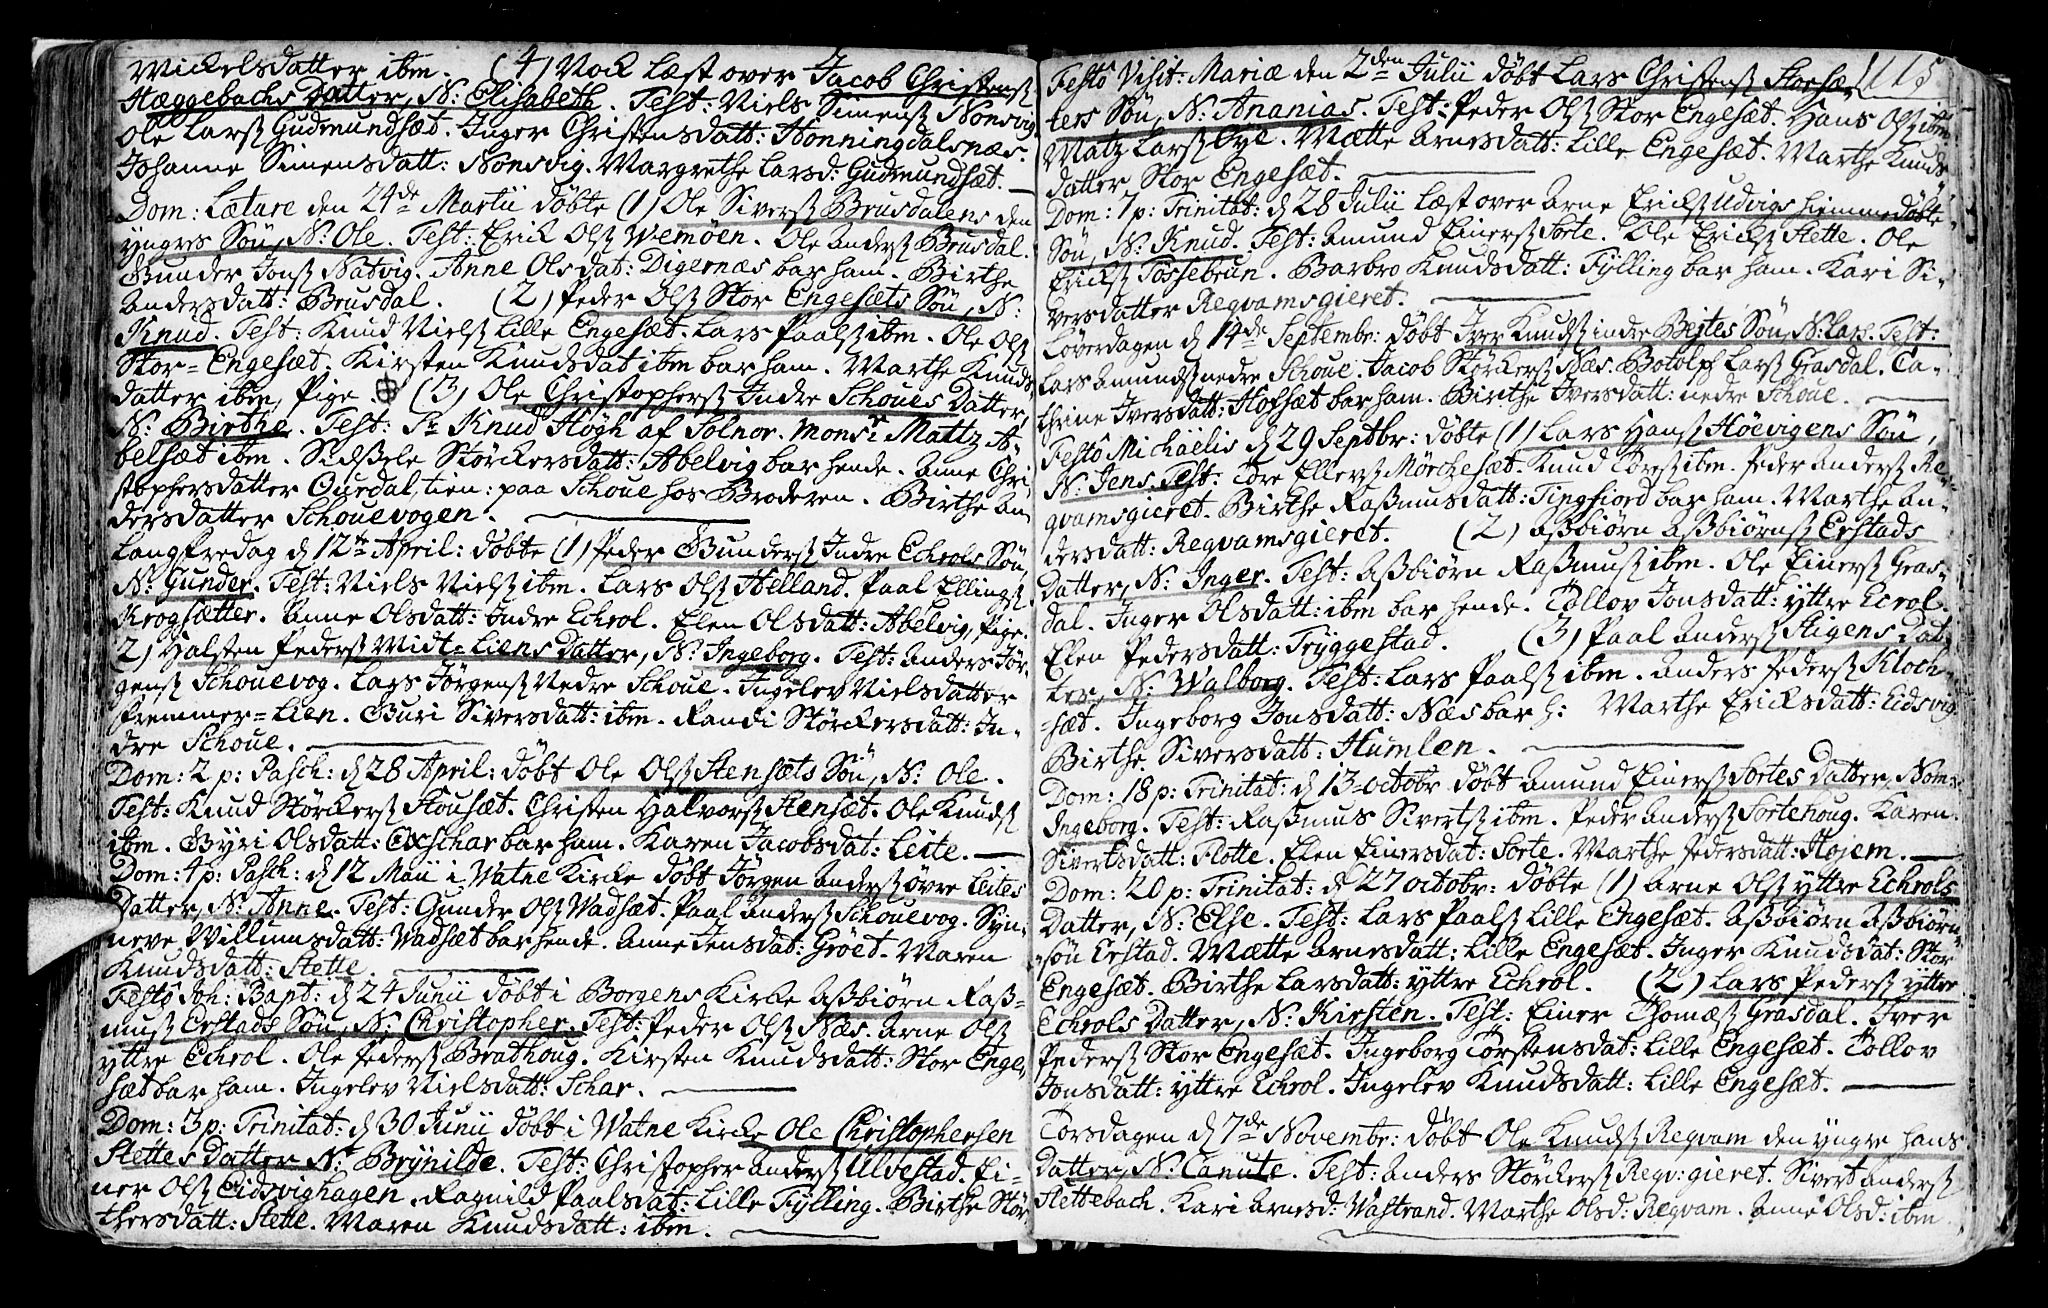 Mickelsdatter ibm. (4) Nock læst over Jacob Christensß
Hæggebachs Datter, N: Elisabeth. Test: Niels Simensß Nonsvig
Ole Larsß Gudmundsæt. Inger Christensdatt: Honningdalsnæs.
Johanne Simensdatt: Nonsvig. Margrethe Larsd: Gudmundsæt.
Dom: Lætare den 24de Martii døbte (1) Ole Siversß Brusdalens den
yngres Søn, N: Ole. Test: Erick Olsß Wemøen. Ole Andersß Brusdal.
Gunder Jonsß Natvig. Anne Olsdat: Digernæs bar ham. Birthe
Andersdatt: Brusdal. (2) Peder Olsß Stor Engesæts Søn, N:
Knud. Test: Knud Nielsß Lille Engesæt. Lars Paalsß ibm. Ole Olsß
Stor=Engesæt. Kirsten Knudsdat ibm bar ham. Marthe Knuds
datter ibm, Pige. (3) Ole Christophersß Indre Schoues Datter,
N: Birthe. Test: Sr Knud Høgh af Solnor. Monsr Mattz A-
belsæt ibm. Sidßele Størckersdatt: Abelvig bar hende. Anne Chri
stophersdatter Ouedal, tien: paa Schoue hos Broderen. Birthe An
dersdatter Schouevogen.
Langfredag d 12te April: døbte (1) Peder Gundersß Indre Echrols Søn
N: Gunder. Test: Niels Nielsß ibm. Lars Olsß Helland. Paal Ellingsß
Krogsætter. Anne Olsdatt: Indre Echrol. Elen Olsdatt: Abelvig, Pige.
2) Halsten Pedersß Midt=Liens Datter, N: Ingeborg. Test: Anders Jør-
gensß Schouevog. Lars Jørgensß Nedre Schoue. Ingelev Nielsdatter
Fremmer=Lien. Guri Siversdatt: ibm. Randi Størckersdatt: In-
dre Schoue.
Dom: 2 p: Pasch: d 28 April: døbt Ole Olsß Stensæts Søn, N: Ole.
Test: Knud Størckersß Housæt. Christen Halvorsß Stensæt. Ole Knudsß
ibm. Gyri Olsdatt: Exschar bar ham. Karen Jacobsdat: Leite.
Dom: 4 p: Pasch: d 12 Maii i Watne Kircke døbt Jørgen Andersß øvre Leites
Datter, N: Anne. Test: Gunder Olsß Wadsæt. Paal Andersß Schouevog. Syn-
neve Willumsdatt: Wadsæt bar hende. Anne Jensdat: Grøet. Maren
Knudsdatt: Stette.
Festô Joh: Bapt: d 24 Junii døbt i Borgens Kirke Aßbiørn Raß-
musß Erstads Søn, N: Christopher. Test: Peder Olsß Næs. Arne Olsß
yttre Echrol. Ole Pedersß Brathoug. Kirsten Knudsdatt: Stor Enge-
sæt bar ham. Ingelev Nielsdatt: Schar.
Dom: 3 p: Trinitat: d 30 Junii døbt i Watne Kircke Ole Christophersen
Stettes Datter N: Brynilde. Test: Christopher Andersß Ulvestad. Ei-
ner Olsß Eidsvighagen. Ragnild Paalsdat: Lille Fylling. Birthe Stör
chersdatt: Stette. Maren Knudsdatt: ibm.
115
Festô Visit: Mariæ den 2den Julii døbt Lars Christensß Storsæ-
ters Søn, N: Ananias. Test: Peder Olsß Stor Engesæt. Hans Olsß ibm
Matz Larsß Eye. Mætte Arnesdatt: Lille Engesæt. Marthe Knuds
datter Stor Engesæt.
Dom: 7 p: Trinitat: d 28 Julii læst over Arne Ericksß Udvigs hiemmedøbte
Søn, N: Knud. Test: Amund Einersß Sorte. Ole Ericksß Stette. Ole
Ericksß Fossebrun. Barbro Knudsdatt: Fylling bar ham. Kari Si-
versdatter Reqvamsgieret.
Løverdagen d 14de Septembr: døbt Iver Knudsß indre Bejtes Søn, N: Lars. Test:
Lars Amundsß nedre Schoue. Jacob Størckersß Næs. Botolph Larsß Grasdal. Ca-
thrine Iversdatt: Hofsæt bar ham. Birthe Iversdatt: nedre Schoue.
Festô Michaëlis d 29 Septbr: døbte (1) Lars Hansß Høevigens Søn,
N: Jens. Test: Tore Ellersß Mörchesæt. Knud Toresß ibm. Peder Andersß Re-
qvamsgieret. Birthe Raßmusdatt: Tingfiord bar ham. Marthe An-
dersdatt: Reqvamsgieret. (2) Aßbiørn Aßbiørnsß Erstads
Datter, N: Inger. Test: Aßbiørn Raßmusß ibm. Ole Einersß Gras-
dal. Inger Olsdatt: ibm bar hende. Tollov Jonsdatt: yttre Ecrol.
Elen Pedersdatt: Tryggestad. (3) Paal Andersß Stigens Dat-
ter, N: Walborg. Test: Lars Paalsß ibm. Anders Pedersß Kloch-
=sæt. Ingeborg Jonsdatt: Næs bar h: Marthe Ericksdatt: Eidsvig
Birthe Siversdatt: Humlen.
Dom: 18 p: Trinitat: d 13 octobr døbt Amund Einersß Sortes Datter, Nom:
Ingeborg. Test: Raßmus Sivertsß ibm. Peder Andersß Sortehoug. Karen
Sivertsdatt: Flotte. Elen Einersdat: Sorte. Marthe Pedersdatt: Hojem.
Dom: 20 p: Trinitat: d 27 octobr: døbte (1) Arne Olsß yttre Echrols
Datter, N: Else. Test: Lars Paalsß Lille Engesæt. Aßbiørn Aßbiørn-
=søn Erstad. Mætte Arnesdatt: Lille Engesæt. Inger Knudsdat: Stor
Engesæt. Birthe Larsdatt: yttre Echrol. (2) Lars Pedersß yttre
Echrols Datter, N: Kirsten. Test: Einer Thomæsß Grasdal. Iver
Pedersß Stor Engesæt. Ingeborg Torstensdat: Lille Engesæt. Tollov
Jonsdatt: yttre Echrol. Ingelev Knudsdatt: Lille Engesæt.
Torsdagen d 7de Novembr: døbt Ole Knudsß Reqvam den yngre hans
Datter, N: Canute. Test: Anders Størckersß Reqv:gieret. Sivert Andersß
Stettebach. Kari Arnesd: Wastrand. Marthe Olsd: Reqvam. Anne Olsd: ibm